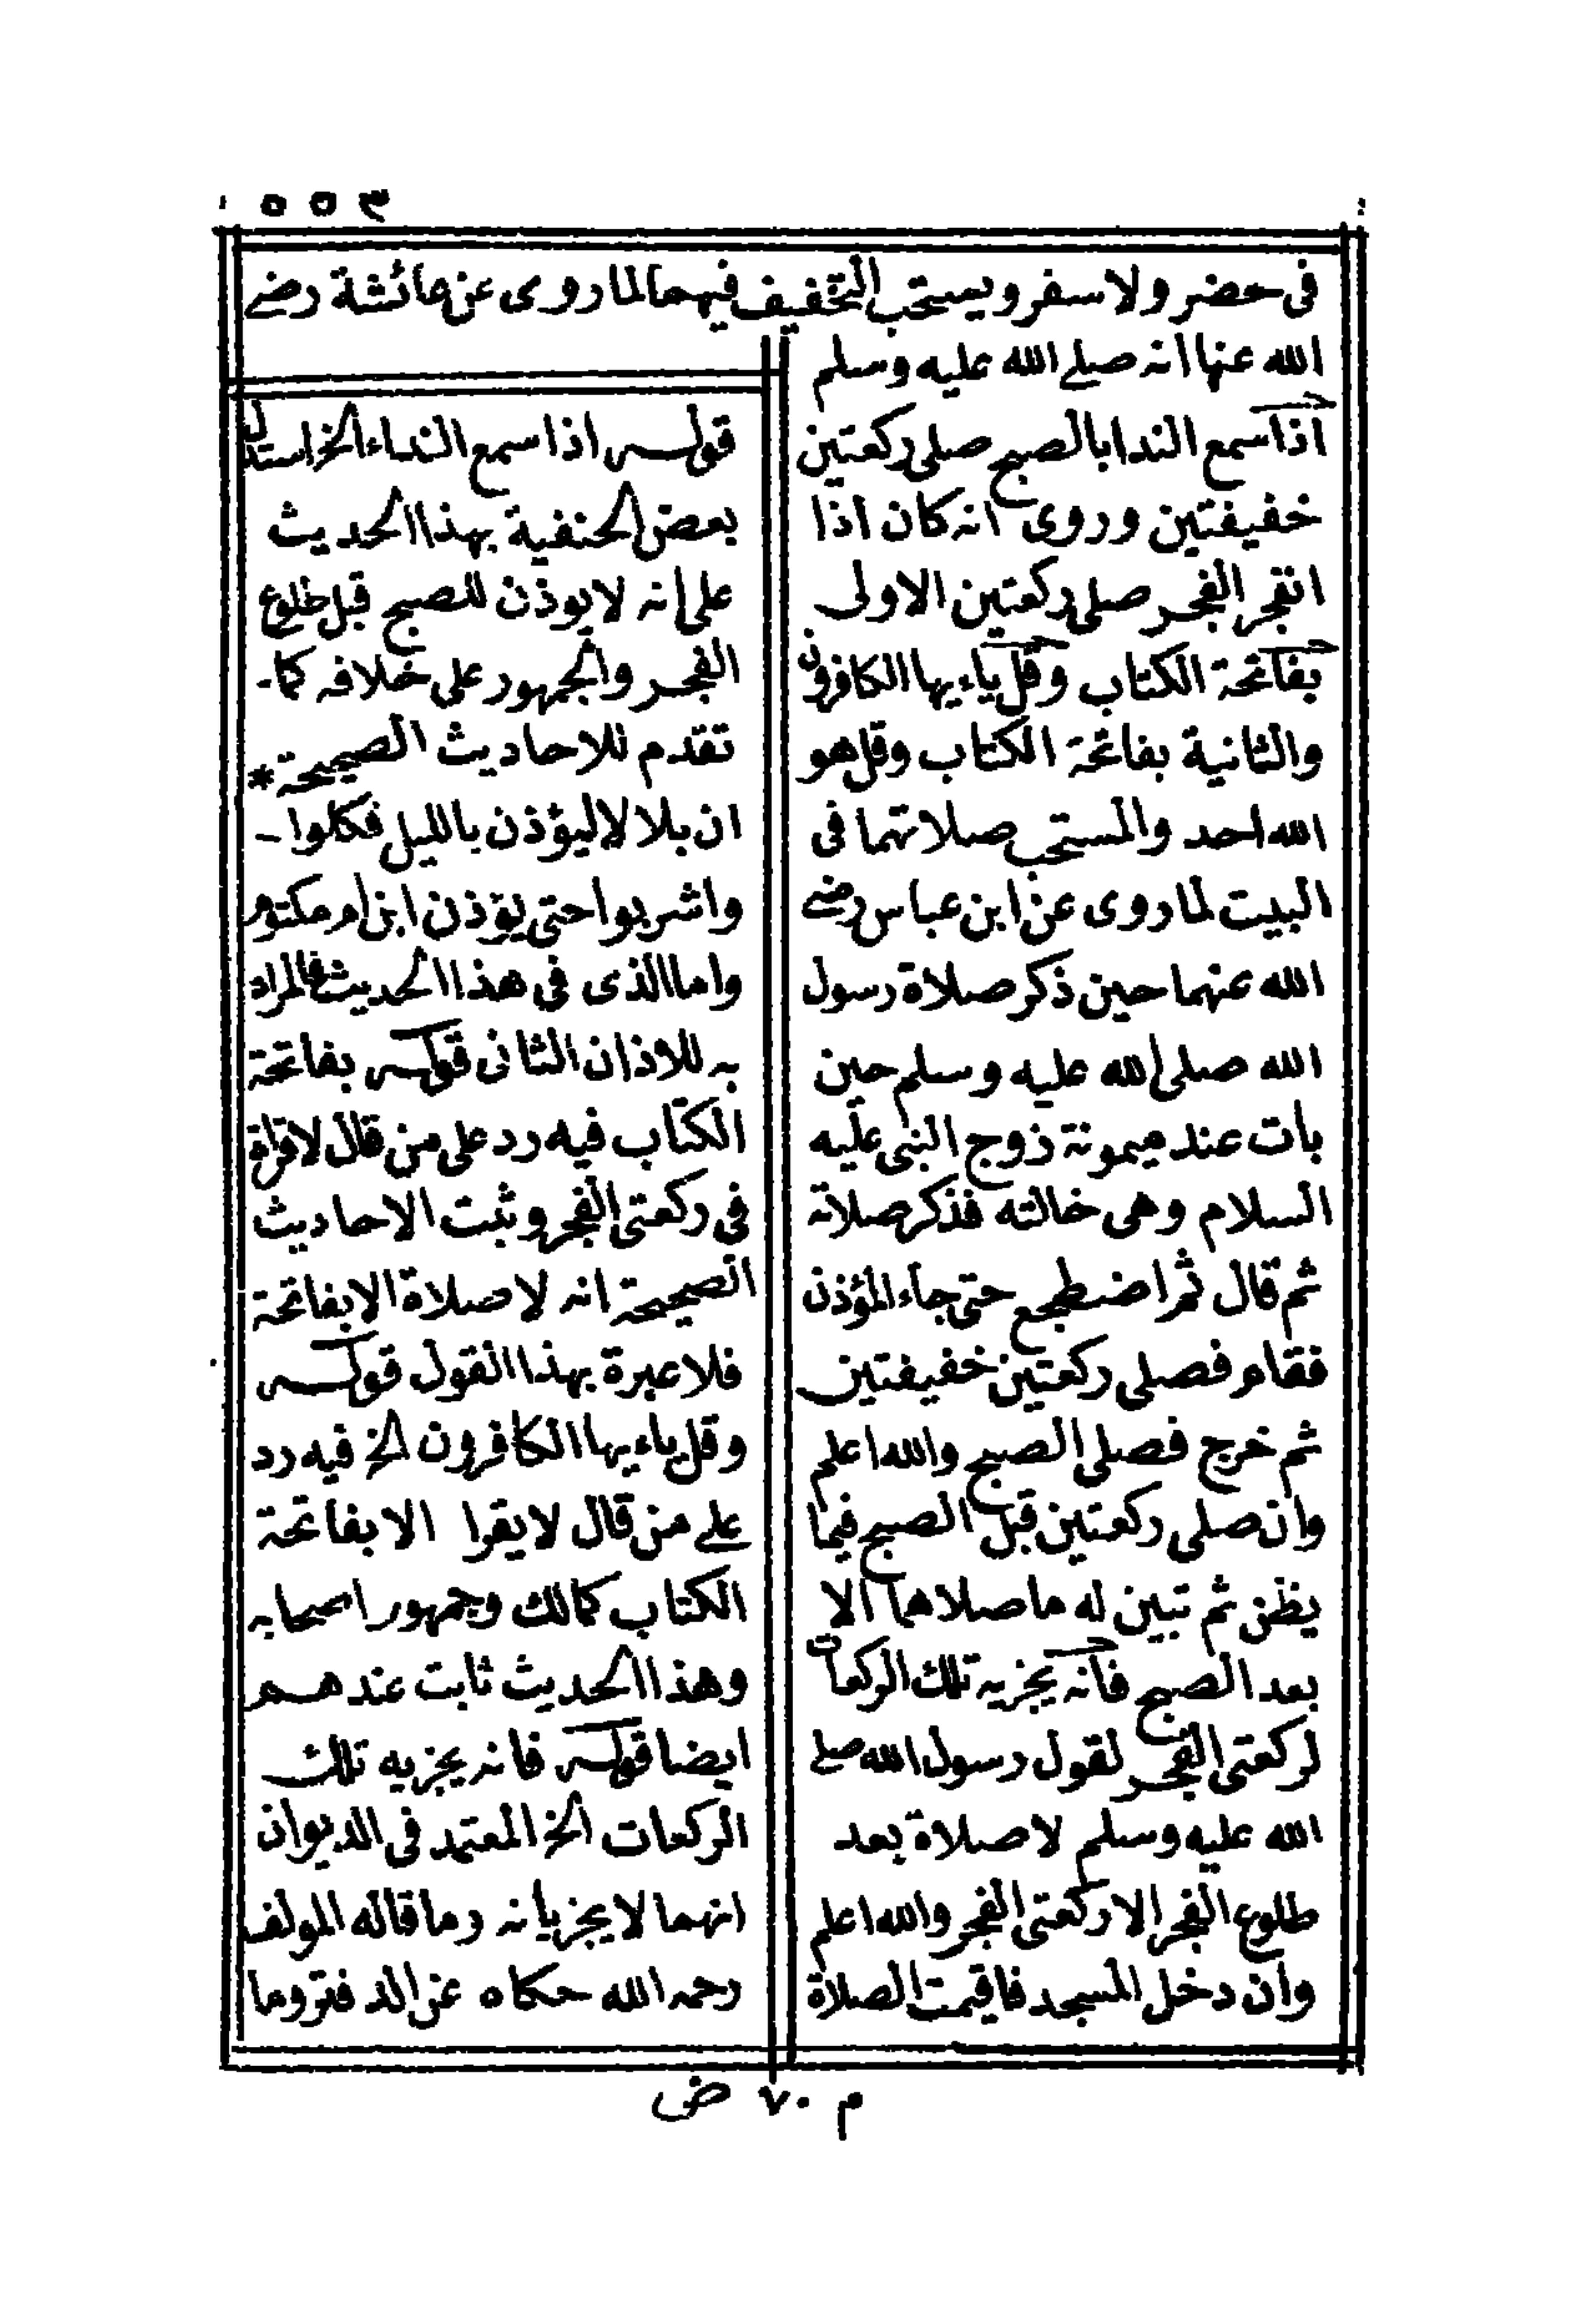 ٥٥٣
فى حضر ولا سفر ويستحب التخفيف فيهما لما روى عن عائشة رضي
الله عنها انه صلى الله عليه وسلم
اذا سمع الندا بالصبح صلى ركعتين
خفيفتين وروى انه كان اذا
انفجر الفجر صلى ركعتين الاولى
بفاتحة الكتاب وقل ياءيها الكافرون
والثانية بفاتحة الكتاب وقل هو
الله احد والمستحب صلاتهما فى
البيت لما روى عن ابن عباس رضي
الله عنهما حين ذكر صلاة رسول
الله صلى الله عليه وسلم حين
بات عند ميمونة زوج النبى عليه
السلام وهى خالته فذكر صلاته
ثم قال ثم اضطجع حتى جاء المؤذن
فقام فصلى ركعتين خفيفتين
ثم خرج فصلى الصبح والله اعلم
وان صلى ركعتين قبل الصبح فيما
يظن ثم تبين له ما صلاهما الا
بعد الصبح فانه يجزيه تلك الركعات
لركعتى الفجر لقول رسول الله صلى
الله عليه وسلم لا صلاة بعد
طلوع الفجر الا ركعتى الفجر والله اعلم
وان دخل المسجد فاقيمت الصلاة
قوله اذا سمع النداء الخ استدل
بعض الحنفية بهذا الحديث
على انه لا يوذن للصبح قبل طلوع
الفجر والجمهور على خلافه كما
تقدم للاحاديث الصحيحة *
ان بلالا ليؤذن بالليل فكلوا
واشربوا حتى يؤذن ابن ام مكتوم
واما الذى فى هذا الحديث فالمراد
به للاذان الثانى قوله بفاتحة
الكتاب فيه رد على من قال لا قراة
فى ركعتى الفجر وثبت الاحاديث
الصحيحة انه لا صلاة الا بفاتحة
فلا عبرة بهذا القول قوله
وقل ياءيها الكافرون الخ فيه رد
على من قال لا يقرا الا بفاتحة
الكتاب كمالك وجمهور اصحابه
وهذا الحديث ثابت عندهم
ايضا قوله فانه يجزيه تلك
الركعات الخ المعتمد فى الديوان
انهما لا يجزيانه وما قاله المولف
رحمه الله حكاه عن الدفتر وما
م ٧٠ ض